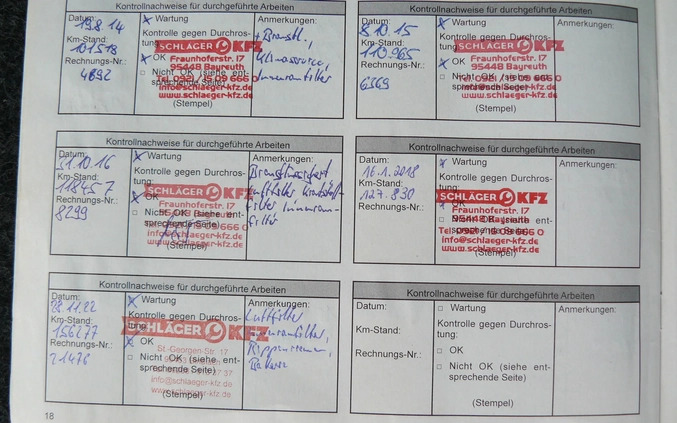 Kontrollnachweise für durchgeführte Arbeiten
Datum:
19.8.14
Km-Stand:
101518
Rechnungs-Nr.:
4892
x Wartung
Kontrolle gegen Durchros-
tung:
x OK
□ Nicht OK (siehe ent-
sprechende Seite)
(Stempel)
SCHLÄGER KFZ
Fraunhoferstr. 17
95448 Bayreuth
Tel. 0921 / 15 09 666 0
info@schlaeger-kfz.de
www.schlaeger-kfz.de
Anmerkungen:
Innenraumfilter
Kontrollnachweise für durchgeführte Arbeiten
Datum:
8.10.15
Km-Stand:
110.965
Rechnungs-Nr.:
6369
x Wartung
Kontrolle gegen Durchros-
tung:
x OK
□ Nicht OK (siehe ent-
sprechende Seite)
(Stempel)
SCHLÄGER KFZ
Fraunhoferstr. 17
95448 Bayreuth
Tel. 0921 / 15 09 666 0
info@schlaeger-kfz.de
www.schlaeger-kfz.de
Anmerkungen:
Kontrollnachweise für durchgeführte Arbeiten
Datum:
31.10.16
Km-Stand:
118457
Rechnungs-Nr.:
8299
x Wartung
Kontrolle gegen Durchros-
tung:
x OK
□ Nicht OK (siehe ent-
sprechende Seite)
(Stempel)
SCHLÄGER KFZ
Fraunhoferstr. 17
95448 Bayreuth
Tel. 0921 / 15 09 666 0
info@schlaeger-kfz.de
www.schlaeger-kfz.de
Anmerkungen:
Luftfilter Kraftstoff-
filter Innenraum-
filter
Kontrollnachweise für durchgeführte Arbeiten
Datum:
16.1.2018
Km-Stand:
127.830
Rechnungs-Nr.:
x Wartung
Kontrolle gegen Durchros-
tung:
x OK
□ Nicht OK (siehe ent-
sprechende Seite)
(Stempel)
SCHLÄGER KFZ
Fraunhoferstr. 17
95448 Bayreuth
Tel. 0921 / 15 09 666 0
info@schlaeger-kfz.de
www.schlaeger-kfz.de
Anmerkungen:
Kontrollnachweise für durchgeführte Arbeiten
Datum:
28.11.22
Km-Stand:
156277
Rechnungs-Nr.:
21476
x Wartung
Kontrolle gegen Durchros-
tung:
x OK
□ Nicht OK (siehe ent-
sprechende Seite)
(Stempel)
SCHLÄGER KFZ
St.-Georgen-Str. 17
info@schlaeger-kfz.de
www.schlaeger-kfz.de
Anmerkungen:
Luftfilter
Innenraumfilter,
Rippenriemen,
Kontrollnachweise für durchgeführte Arbeiten
Datum:
Km-Stand:
Rechnungs-Nr.:
□ Wartung
Kontrolle gegen Durchros-
tung:
□ OK
□ Nicht OK (siehe ent-
sprechende Seite)
(Stempel)
Anmerkungen:
18